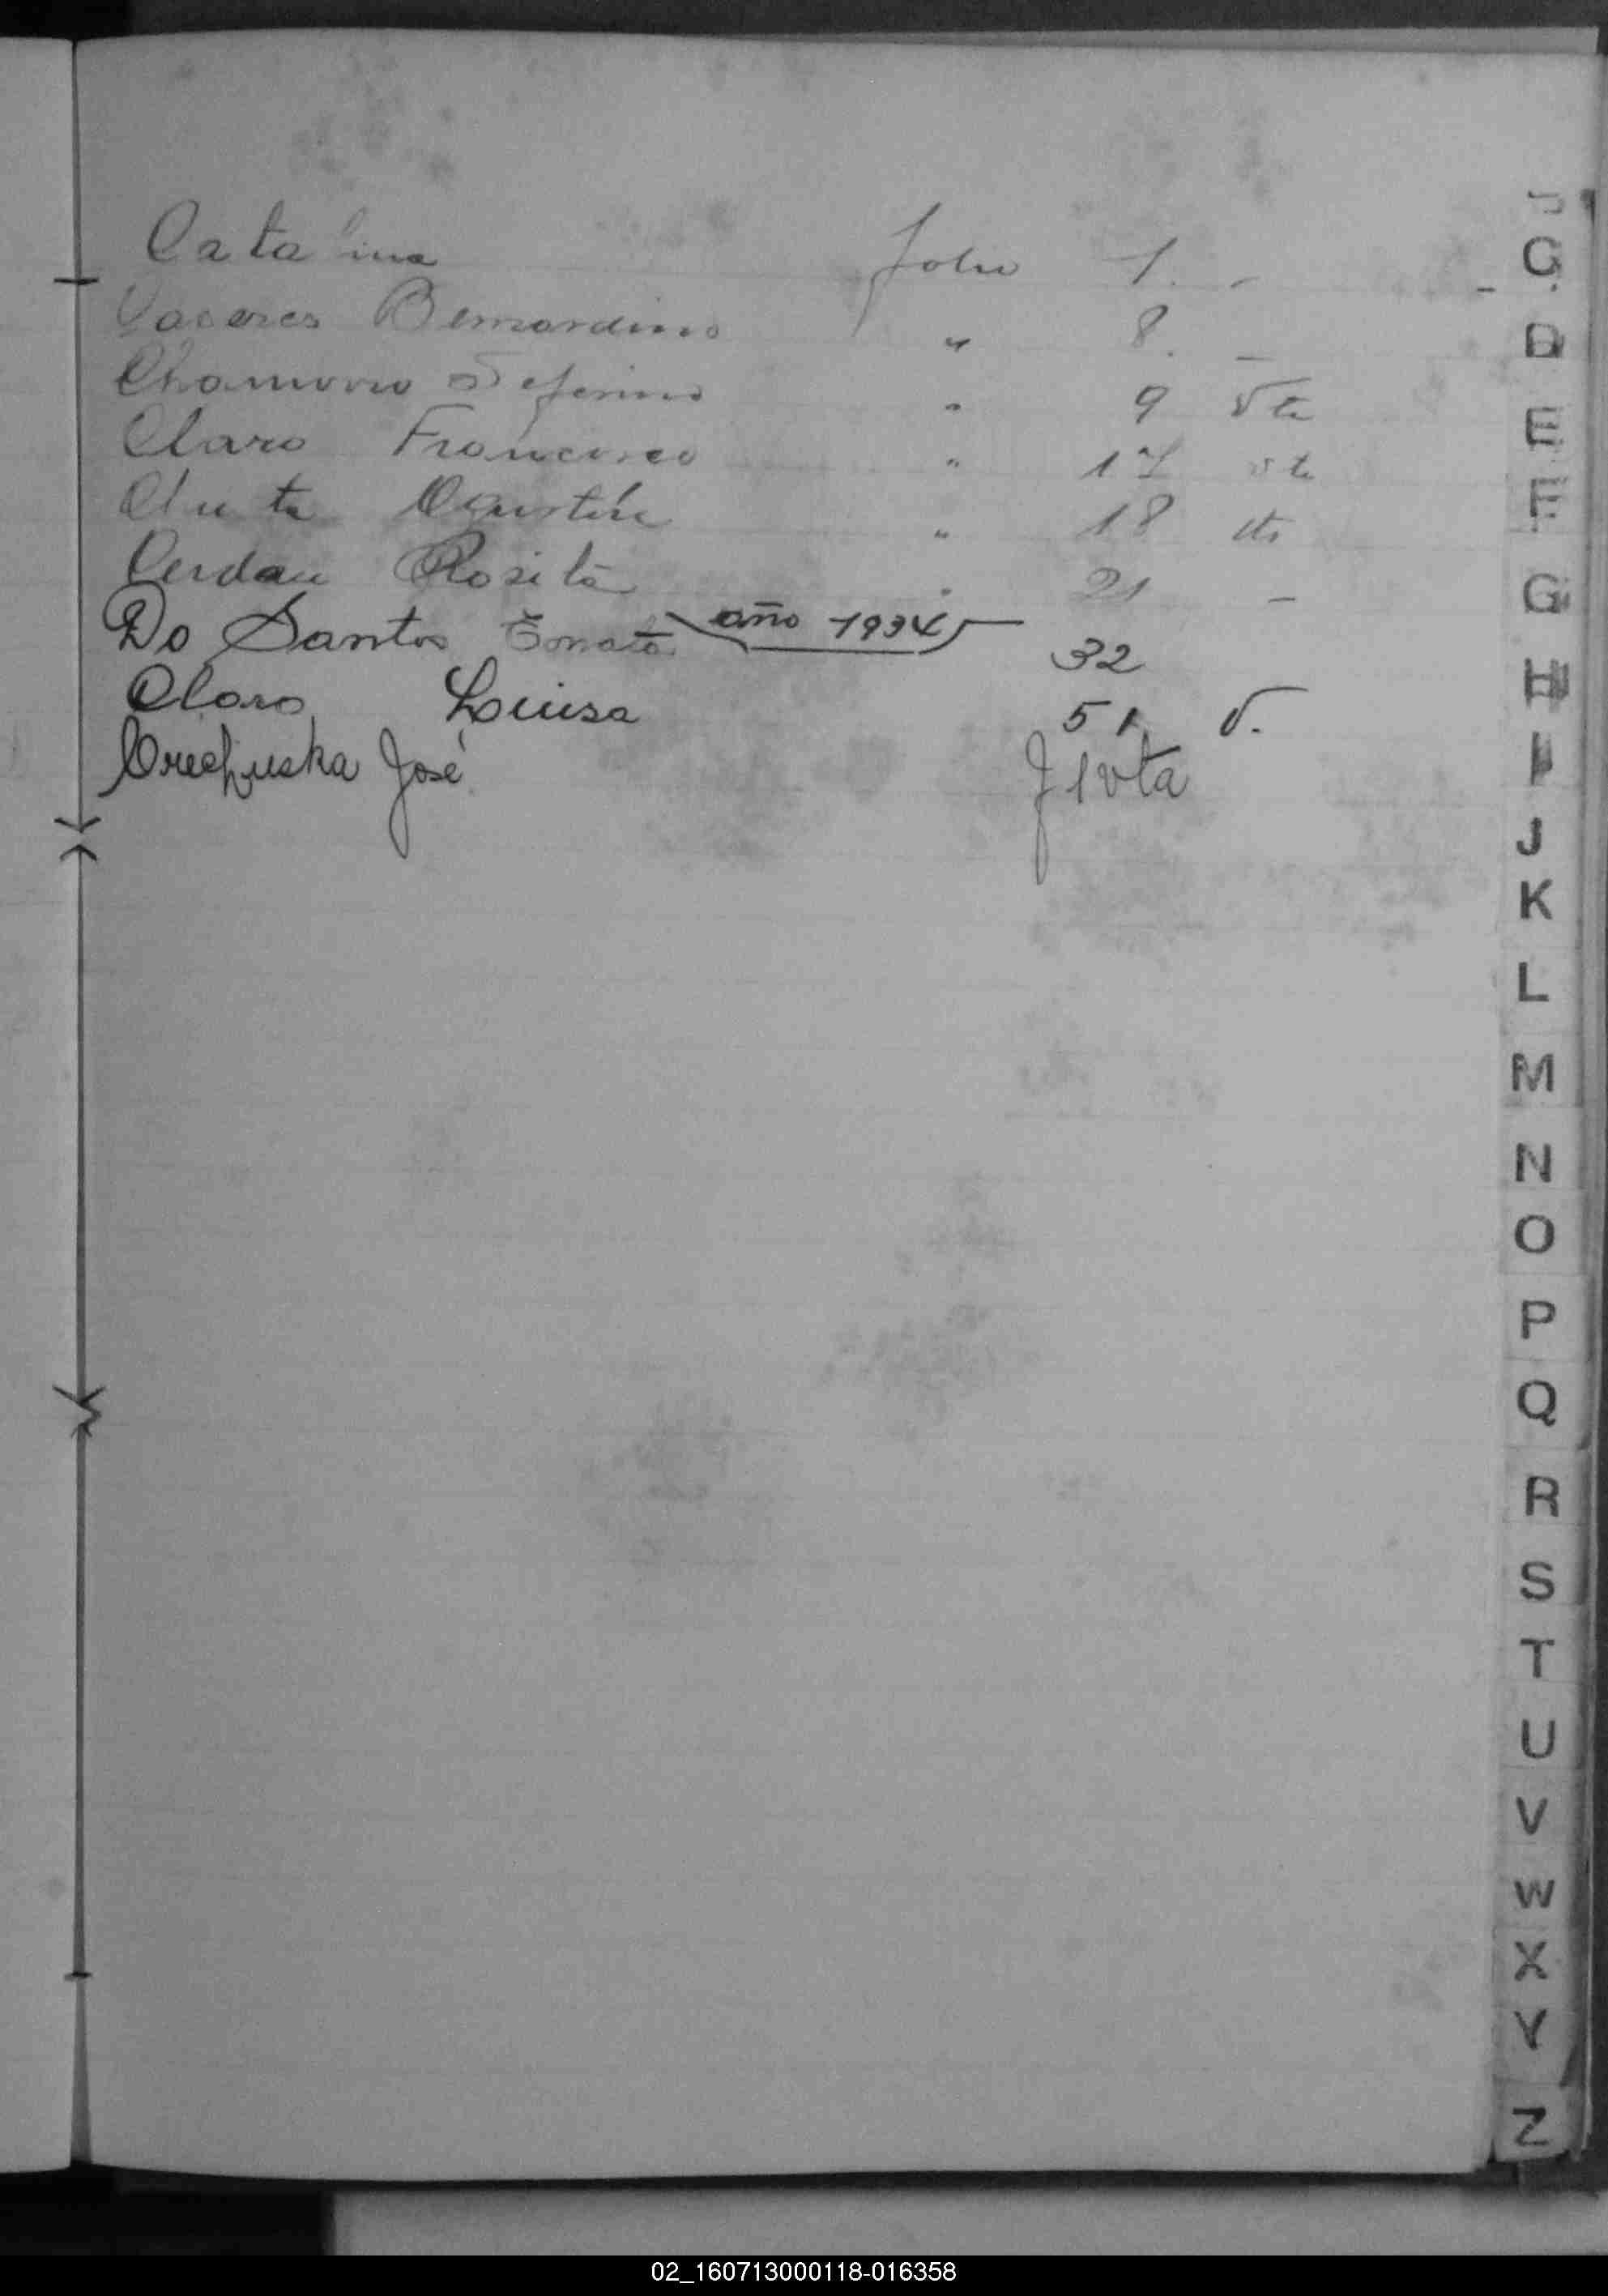 Catalina folio 1. -
Caceres Bernardino " 8. -
Chamorro Seferino " 9 Vta
Claro Francisco " 17 vta
Agustín " 18 vta
Cerdan Rosita " 21 -
Do Santos año 1934 32
Claro Luisa 51 V.
José f 1 vta
C
D
E
F
G
H
I
J
K
L
M
N
O
P
Q
R
S
T
U
V
W
X
Y
Z
02_160713000118-016358